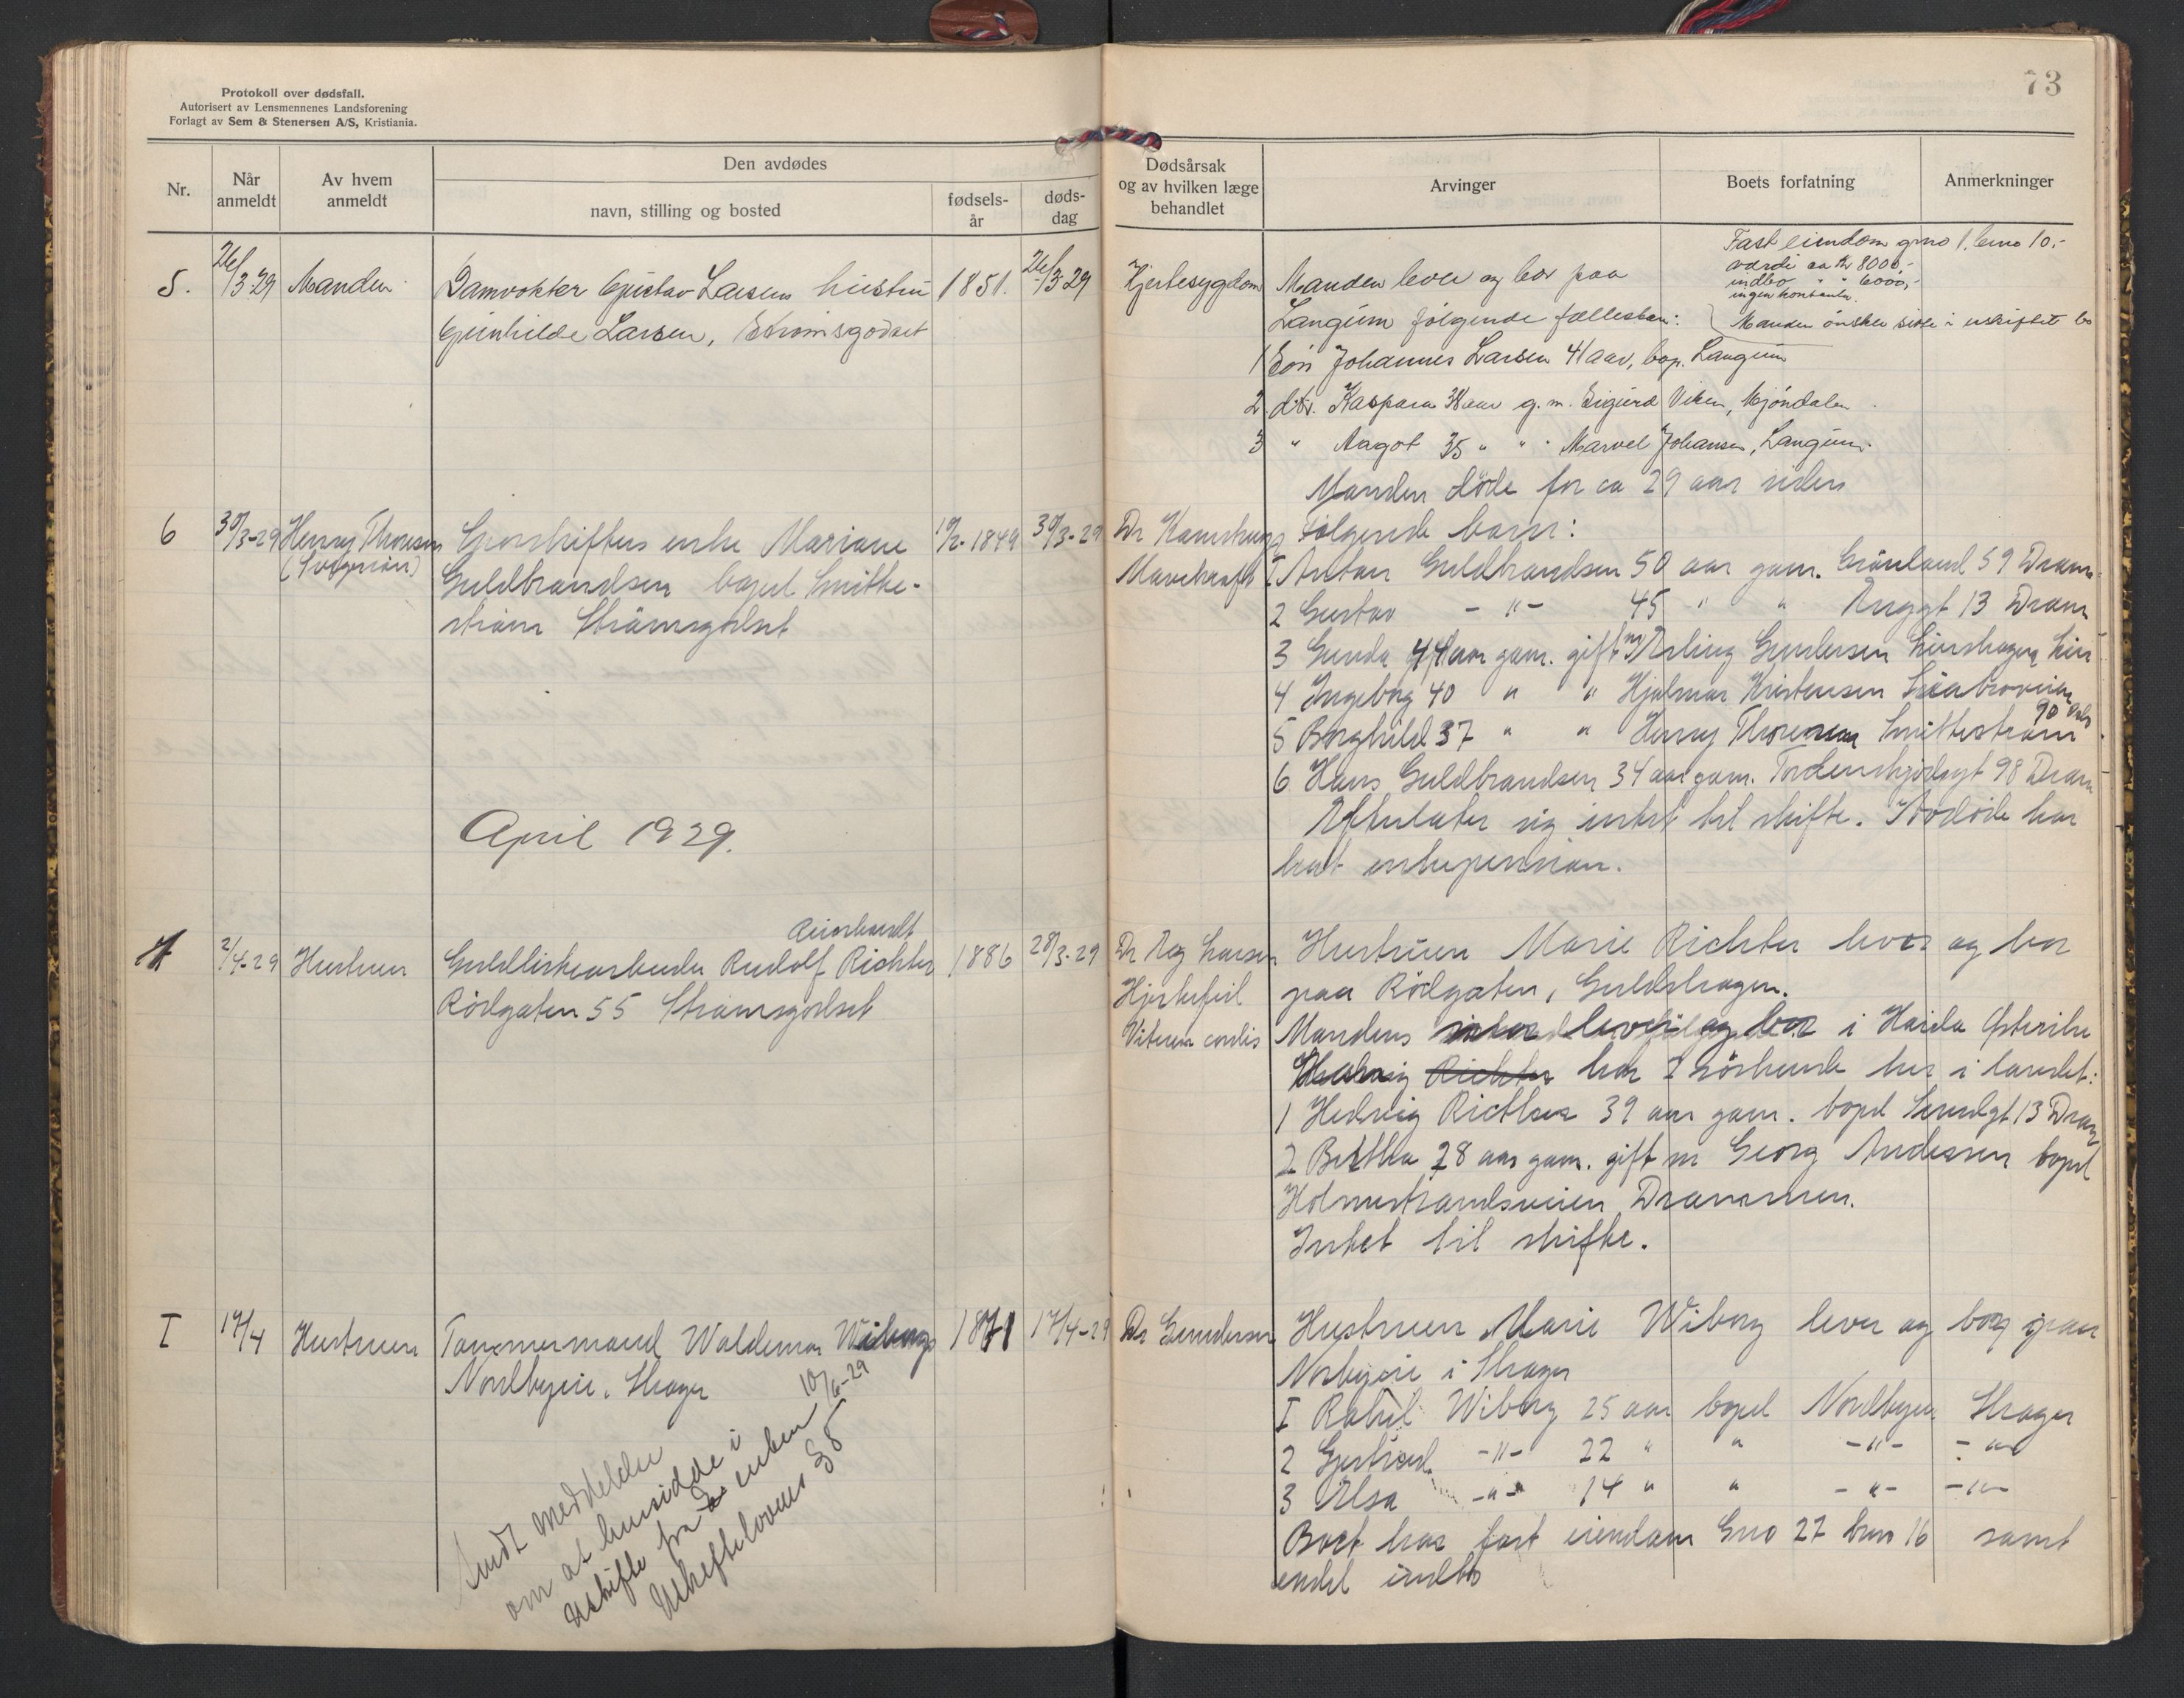 73
Protokoll over dødsfall.
Autorisert av Lensmennenes Landsforening
Forlagt av Sem & Stenersen A/S, Kristiania.
Nr.
Når anmeldt
Av hvem anmeldt
Den avdødes
navn, stilling og bosted
fødsels-år
døds-dag
Dødsårsak og av hvilken læge behandlet
Arvinger
Boets forfatning
Anmerkninger
5. 26/3 29 Manden Damvokter Gustav Larsens hustru 1851. 26/3 29
Gunhilde Larsen, Strømsgodset
Hjertesygdom
Manden lever og bor paa
Langum følgende fællesbarn:
1 Søn Johannes Larsen 41 aar, bop. Langum
2 dtr. Kaspara 38 aar g.m. Sigurd Viken, Mjöndalen
3 " Aagot 35 " " " Marvel Johansen, Langum.
Fast eiendom gno 1, bno 10.-
værdi ca kr 8000,-
indbo " " 6000,-
ingen kontanter.
Manden önsker sitte i uskiftet bo
6 30/3-29 Henry Thoresen
(Svigersön)
Mariane 10/2-1849 30/3-29
Guldbrandsen bopel Smitte-
ström Strömsgodset
Dr Kamstrup
Mavekræft
Manden döde for ca 29 aar siden
Følgende barn:
1 Anton Guldbrandsen 50 aar gam. Grönland 59 Dram
2 Gustav -"- 45 " " 13 Dram
3 Gunda 44 aar gam. gift m/ Erling Gundersen
4 Ingeborg 40 " " Hjalmar Kristensen
90 Oslo
5 Borghild 37 " " Henry Thoresen Smitteström
6 Hans Guldbrandsen 34 aar gam. Tordenskjoldsgt 98 Dram
Efterlater sig intet til skifte. Avdöde har
hat enkepension.
April 1929.
2/4-29 Hustruen Guldlistearbeider Rudolf Richter 1886 28/3-29
Rödgaten 55 Strömsgodset
Dr Aag Larsen
Hjertefeil
Vitium cordis
Hustruen Marie Richter lever og bor
paa Rödgaten, Guldskogen.
Mandens lever og bor i Haida Østerike
Richter har 2 söskende her i landet:
1 Hedvig Richter 39 aar gam. bopel 13 Dram
2 Bertha 28 aar gam. gift m Georg Andersen bopel
Holmestrandsveien Drammen.
Intet til skifte.
I 17/4 Hustruen Tömmermand Waldemar Wiborg 1871 17/4-29
Nordbyeie, Skoger
Dr Gundersen
Hustruen Marie Wiborg lever og bor paa
Norbyeie i Skoger
I Wiborg 25 aar bopel Nordbyeie Skoger
2 Gjertrud -"- 22 " " -"- -"-
3 Elsa -"- 14 " " -"- -"-
Boet har fast eiendom Gno 27 bno 16 samt
endel indbo
10/6-29
Sendt meddelelse
om at hensidde i
uskifte fra enken
Uskiftelovens § 8